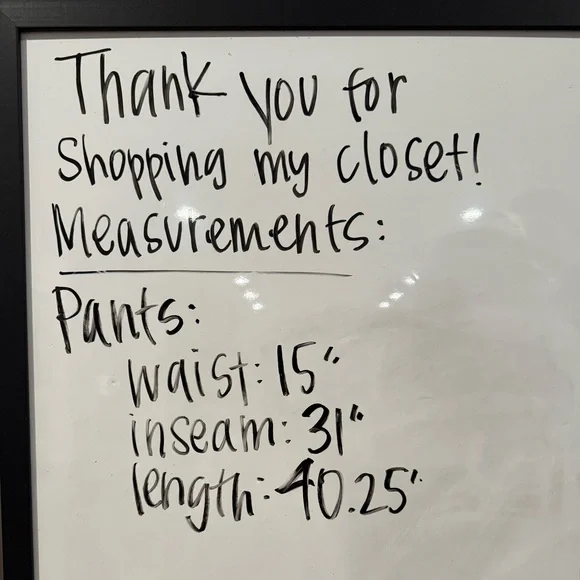 Thank you for
Shopping my closet!
Measurements:
Pants:
waist: 15"
inseam: 31"
length: 40.25"